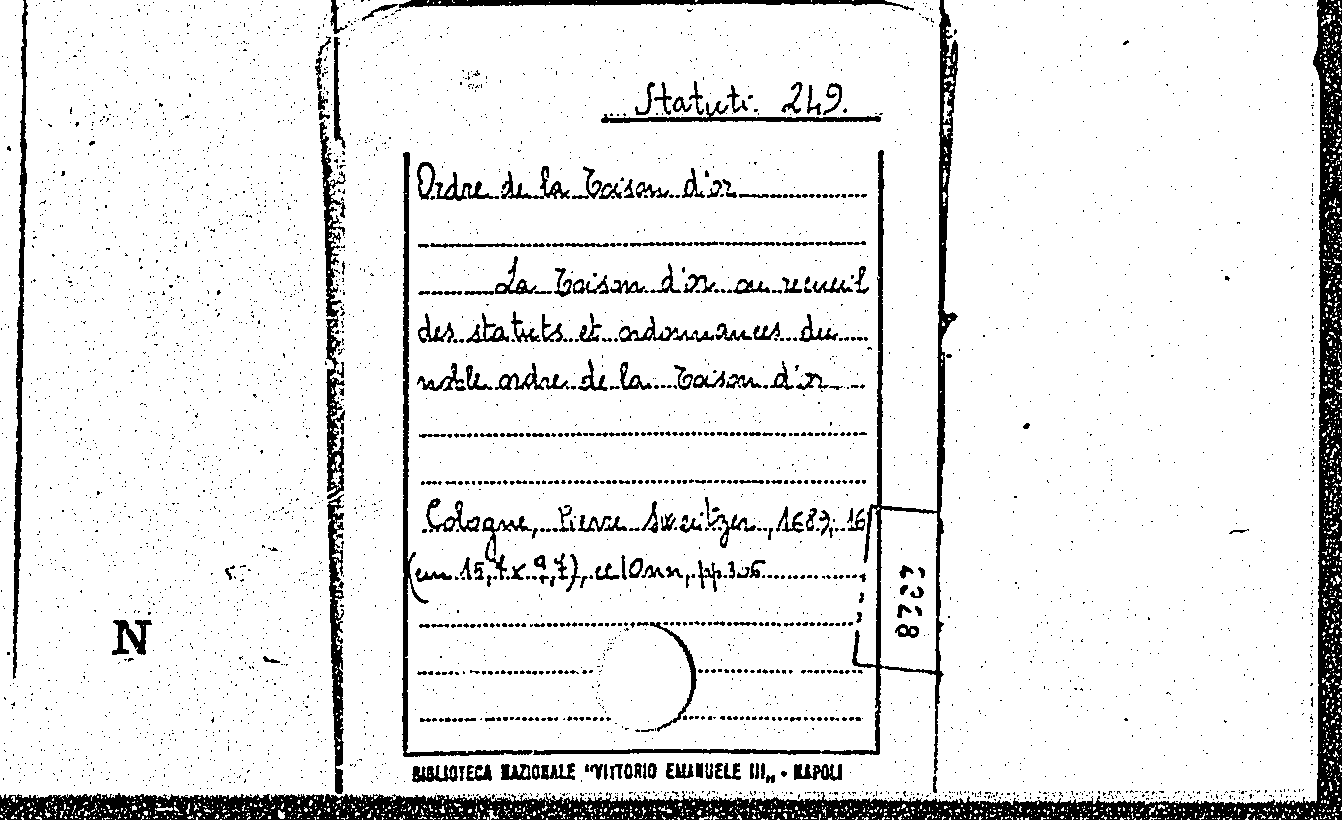 Statuti. 249.
Ordre de la Toison d'or
La Toison d'or ou recueil
des statuts et ordonnances du
noble ordre de la Toison d'or
Cologne, Pierre Sweitzer, 1689, 16
(cm 15,7 x 9,7), cc 10 nn, pp 306
N
BIBLIOTECA NAZIONALE "VITTORIO EMANUELE III„ - NAPOLI